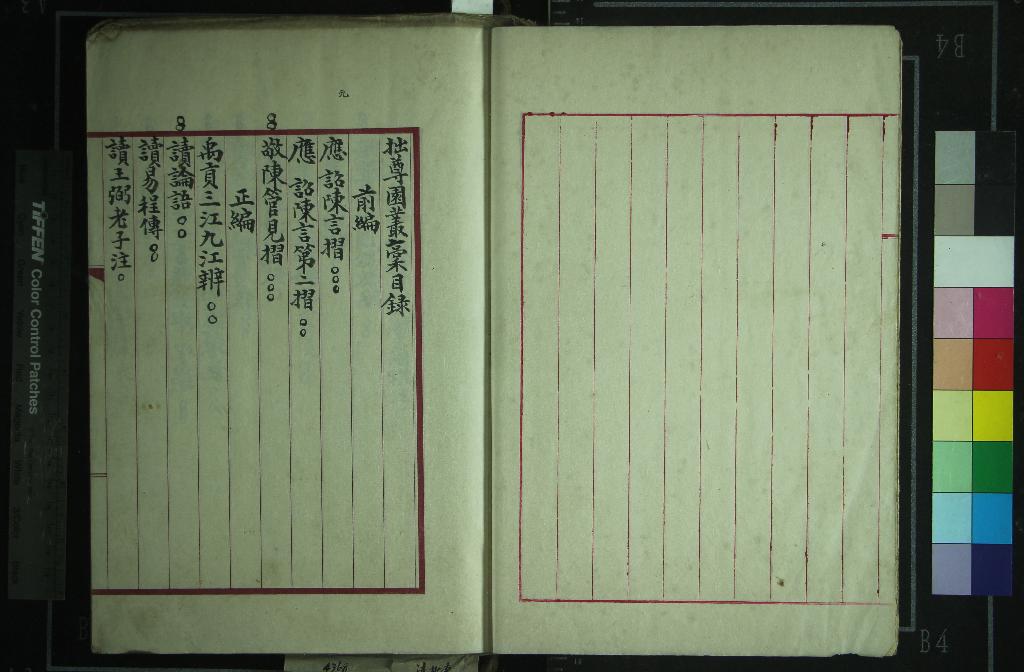 元
拙尊園叢稾目録
前編
應 詔陳言摺。。。
應 詔陳言第二摺。。
敬陳管見摺。。。
正編
禹貢三江九江辨。。
讀論語。。
讀易程傳。。
讀王弼老子注。
TIFFEN Color Control Patches
B4
B4